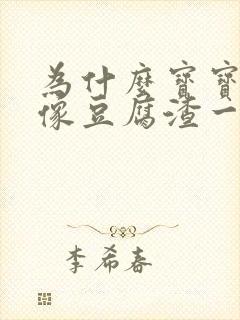 為什麼寶寶
像豆腐渣一
李希春